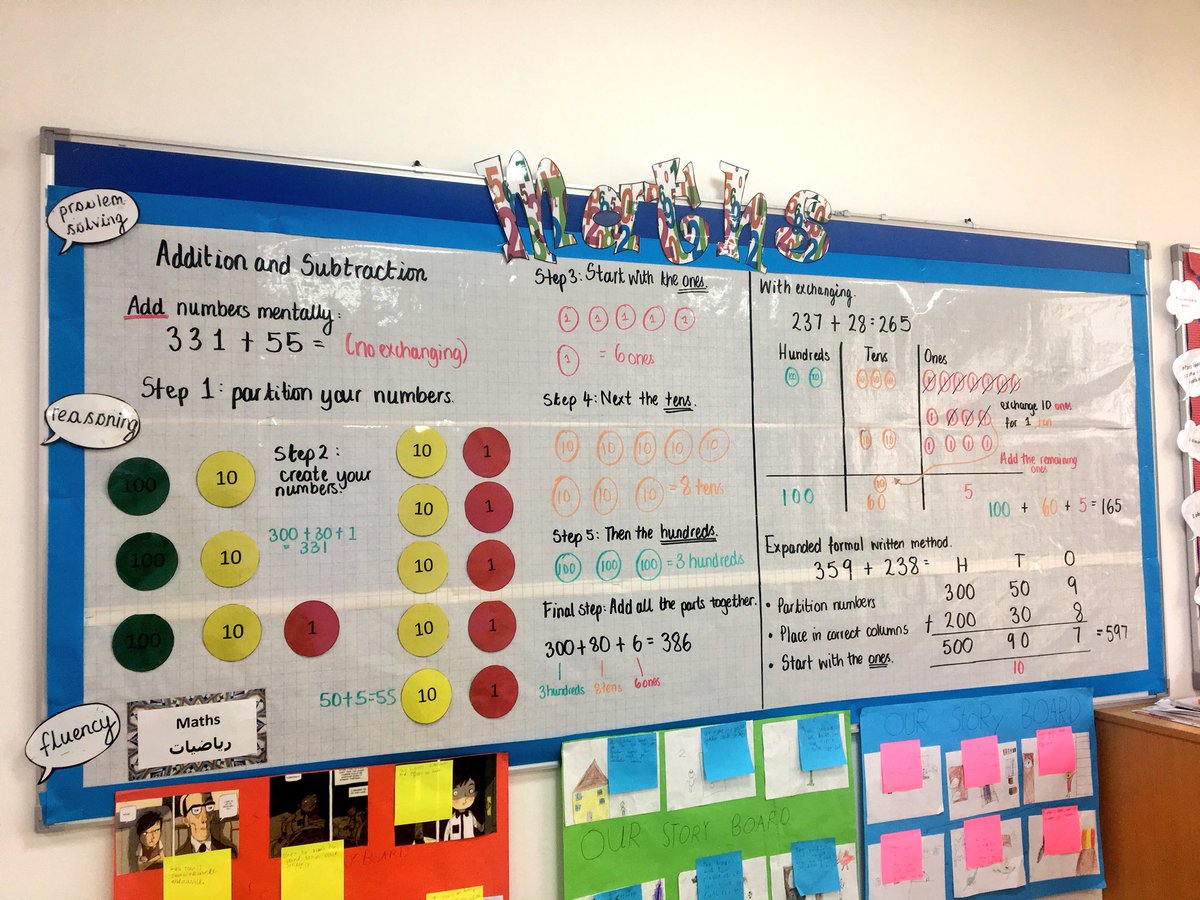 Maths
problem
solving
Addition and Subtraction
Add numbers mentally:
331 + 55 = (no exchanging)
Step 1: partition your numbers.
reasoning
Step 2:
create your
numbers.
300 + 30 + 1
= 331
100 10
100 10
100 10 1
10 1
10 1
10 1
10 1
50+5=55 10 1
fluency
Maths
رياضيات
Step 3: Start with the ones.
1 1 1 1 1
1 = 6 ones
Step 4: Next the tens.
10 10 10 10 10
10 10 10 = 8 tens
Step 5: Then the hundreds.
100 100 100 = 3 hundreds
Final step: Add all the parts together.
300+80+6=386
3 hundreds 8 tens 6 ones
With exchanging.
237 + 28 = 265
Hundreds Tens Ones
100 100 10 10 10
exchange 10 ones
for 1 ten
10 10
1 1 1 1
Add the remaining
ones
10
100 60 5
100 + 60 + 5 = 165
Expanded formal written method.
359 + 238 = H T O
300 50 9
• Partition numbers
+ 200 30 8
• Place in correct columns
500 90 7 = 597
• Start with the ones.
10
OUR STORY BOARD
OUR STORY BOARD